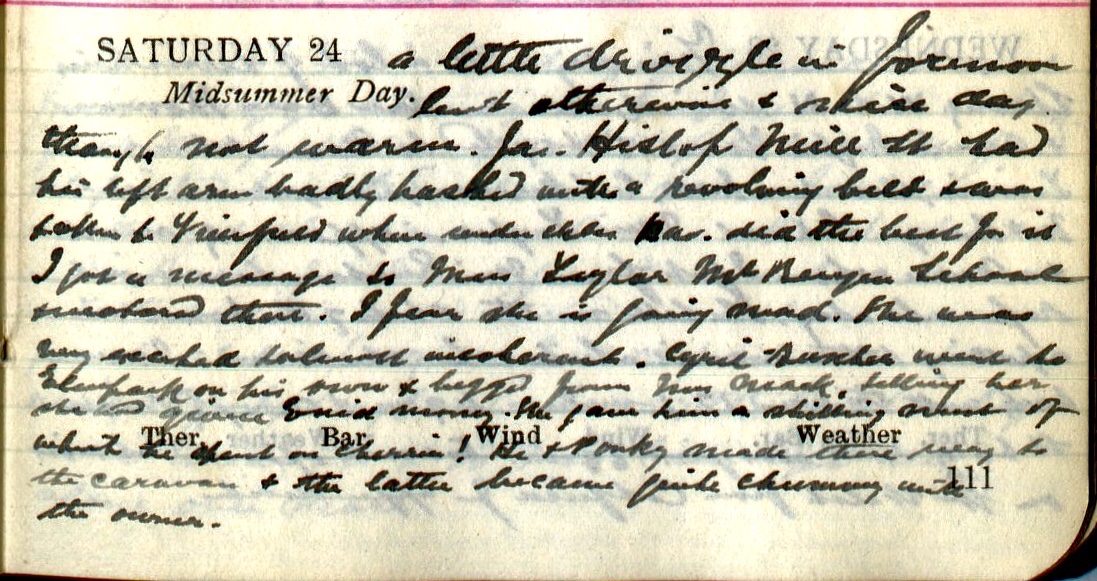 SATURDAY 24 a little drizzle in forenoon
Midsummer Day. but otherwise a nice day
though not warm. Jas. Hislop Mill St had
his left arm badly hashed with a revolving belt & was
taken to where under chlor. did the best for it
I got a message to Miss Taylor School
there. I fear she is going mad. She was
very excited & almost incoherent. Cyril went to
Elmpark on his own & begged from Mrs Mack, telling her
she had given Enid money. She gave him a shilling most of
Ther. Bar. Wind Weather
which he spent on cherries! He & Ponky made their way to
the caravan & the latter became quite chummy with
111
the owner.